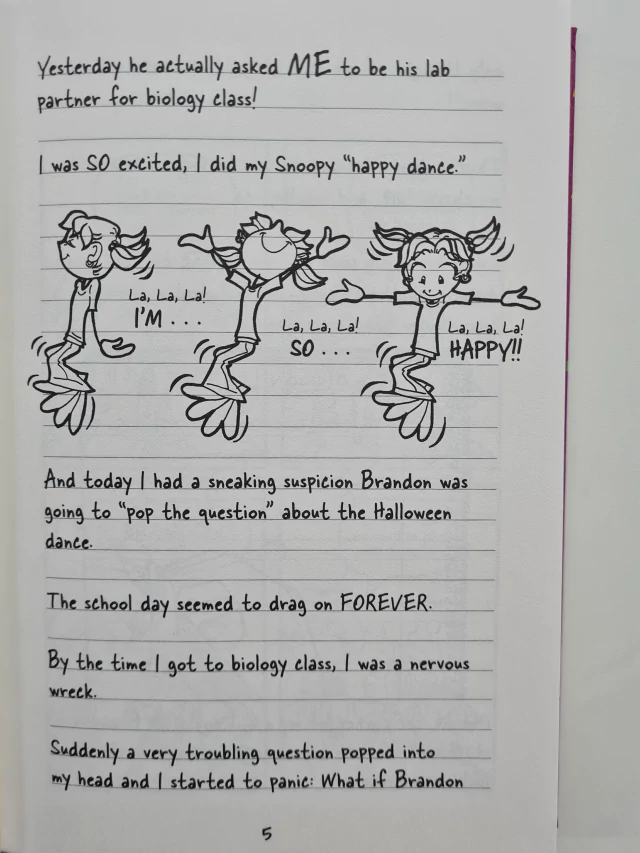 Yesterday he actually asked ME to be his lab
partner for biology class!
I was SO excited, I did my Snoopy “happy dance.”
La, La, La!
I’M . . .
La, La, La!
SO . . .
La, La, La!
HAPPY!!
And today I had a sneaking suspicion Brandon was
going to “pop the question” about the Halloween
dance.
The school day seemed to drag on FOREVER.
By the time I got to biology class, I was a nervous
wreck.
Suddenly a very troubling question popped into
my head and I started to panic: What if Brandon
5